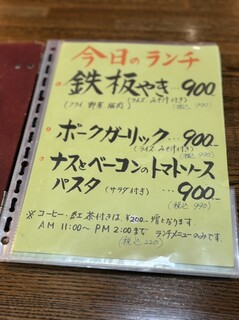 今日のランチ
鉄板やき…900
(フライ 野菜 豚肉) (ライス みそ汁付き) (税込 990)
ポークガーリック…900
(ライス みそ汁付き)
(税込 990)
ナスとベーコンのトマトソース
パスタ (サラダ付き) …900
(税込 990)
※コーヒー・紅茶付きは、¥200増となります
(税込 220)
AM 11:00～ PM 2:00まで ランチメニューのみです.